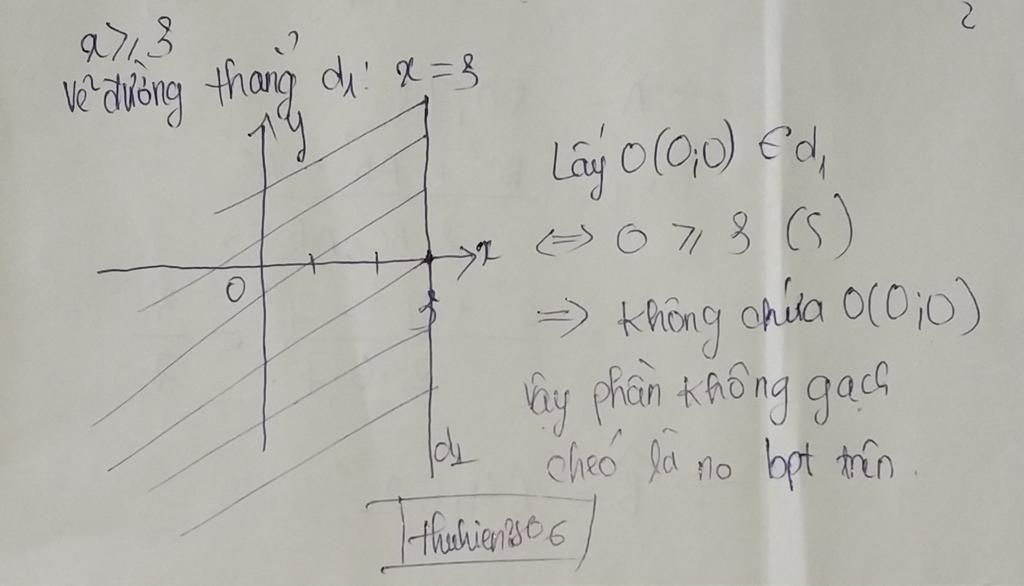 2
x ⩾ 3
vẽ đường thẳng d₁: x = 3
y
x
O
3
d₁
Lấy O(0;0) ∈ d₁
⇔ 0 ⩾ 3 (S)
⇒ không chứa O(0;0)
vậy phần không gạch
chéo là no bpt trên.